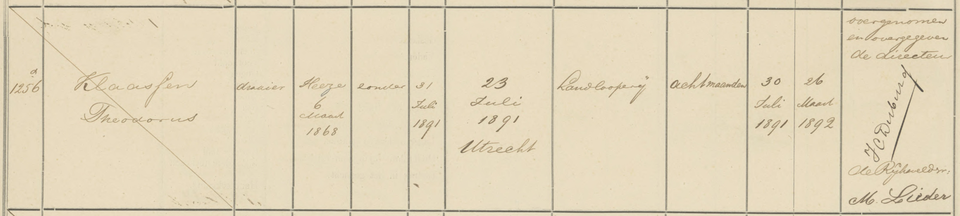 1256 a
Klaassen
Theodorus
draaier
Heeze
6
Maart
1868
zonder
31
Juli
1891
23
Juli
1891
Utrecht
Landlooperij
acht maanden
30
Juli
1891
26
Maart
1892
overgenomen
en overgegeven
de directeur
de Rijksveldw.
M. Lieder